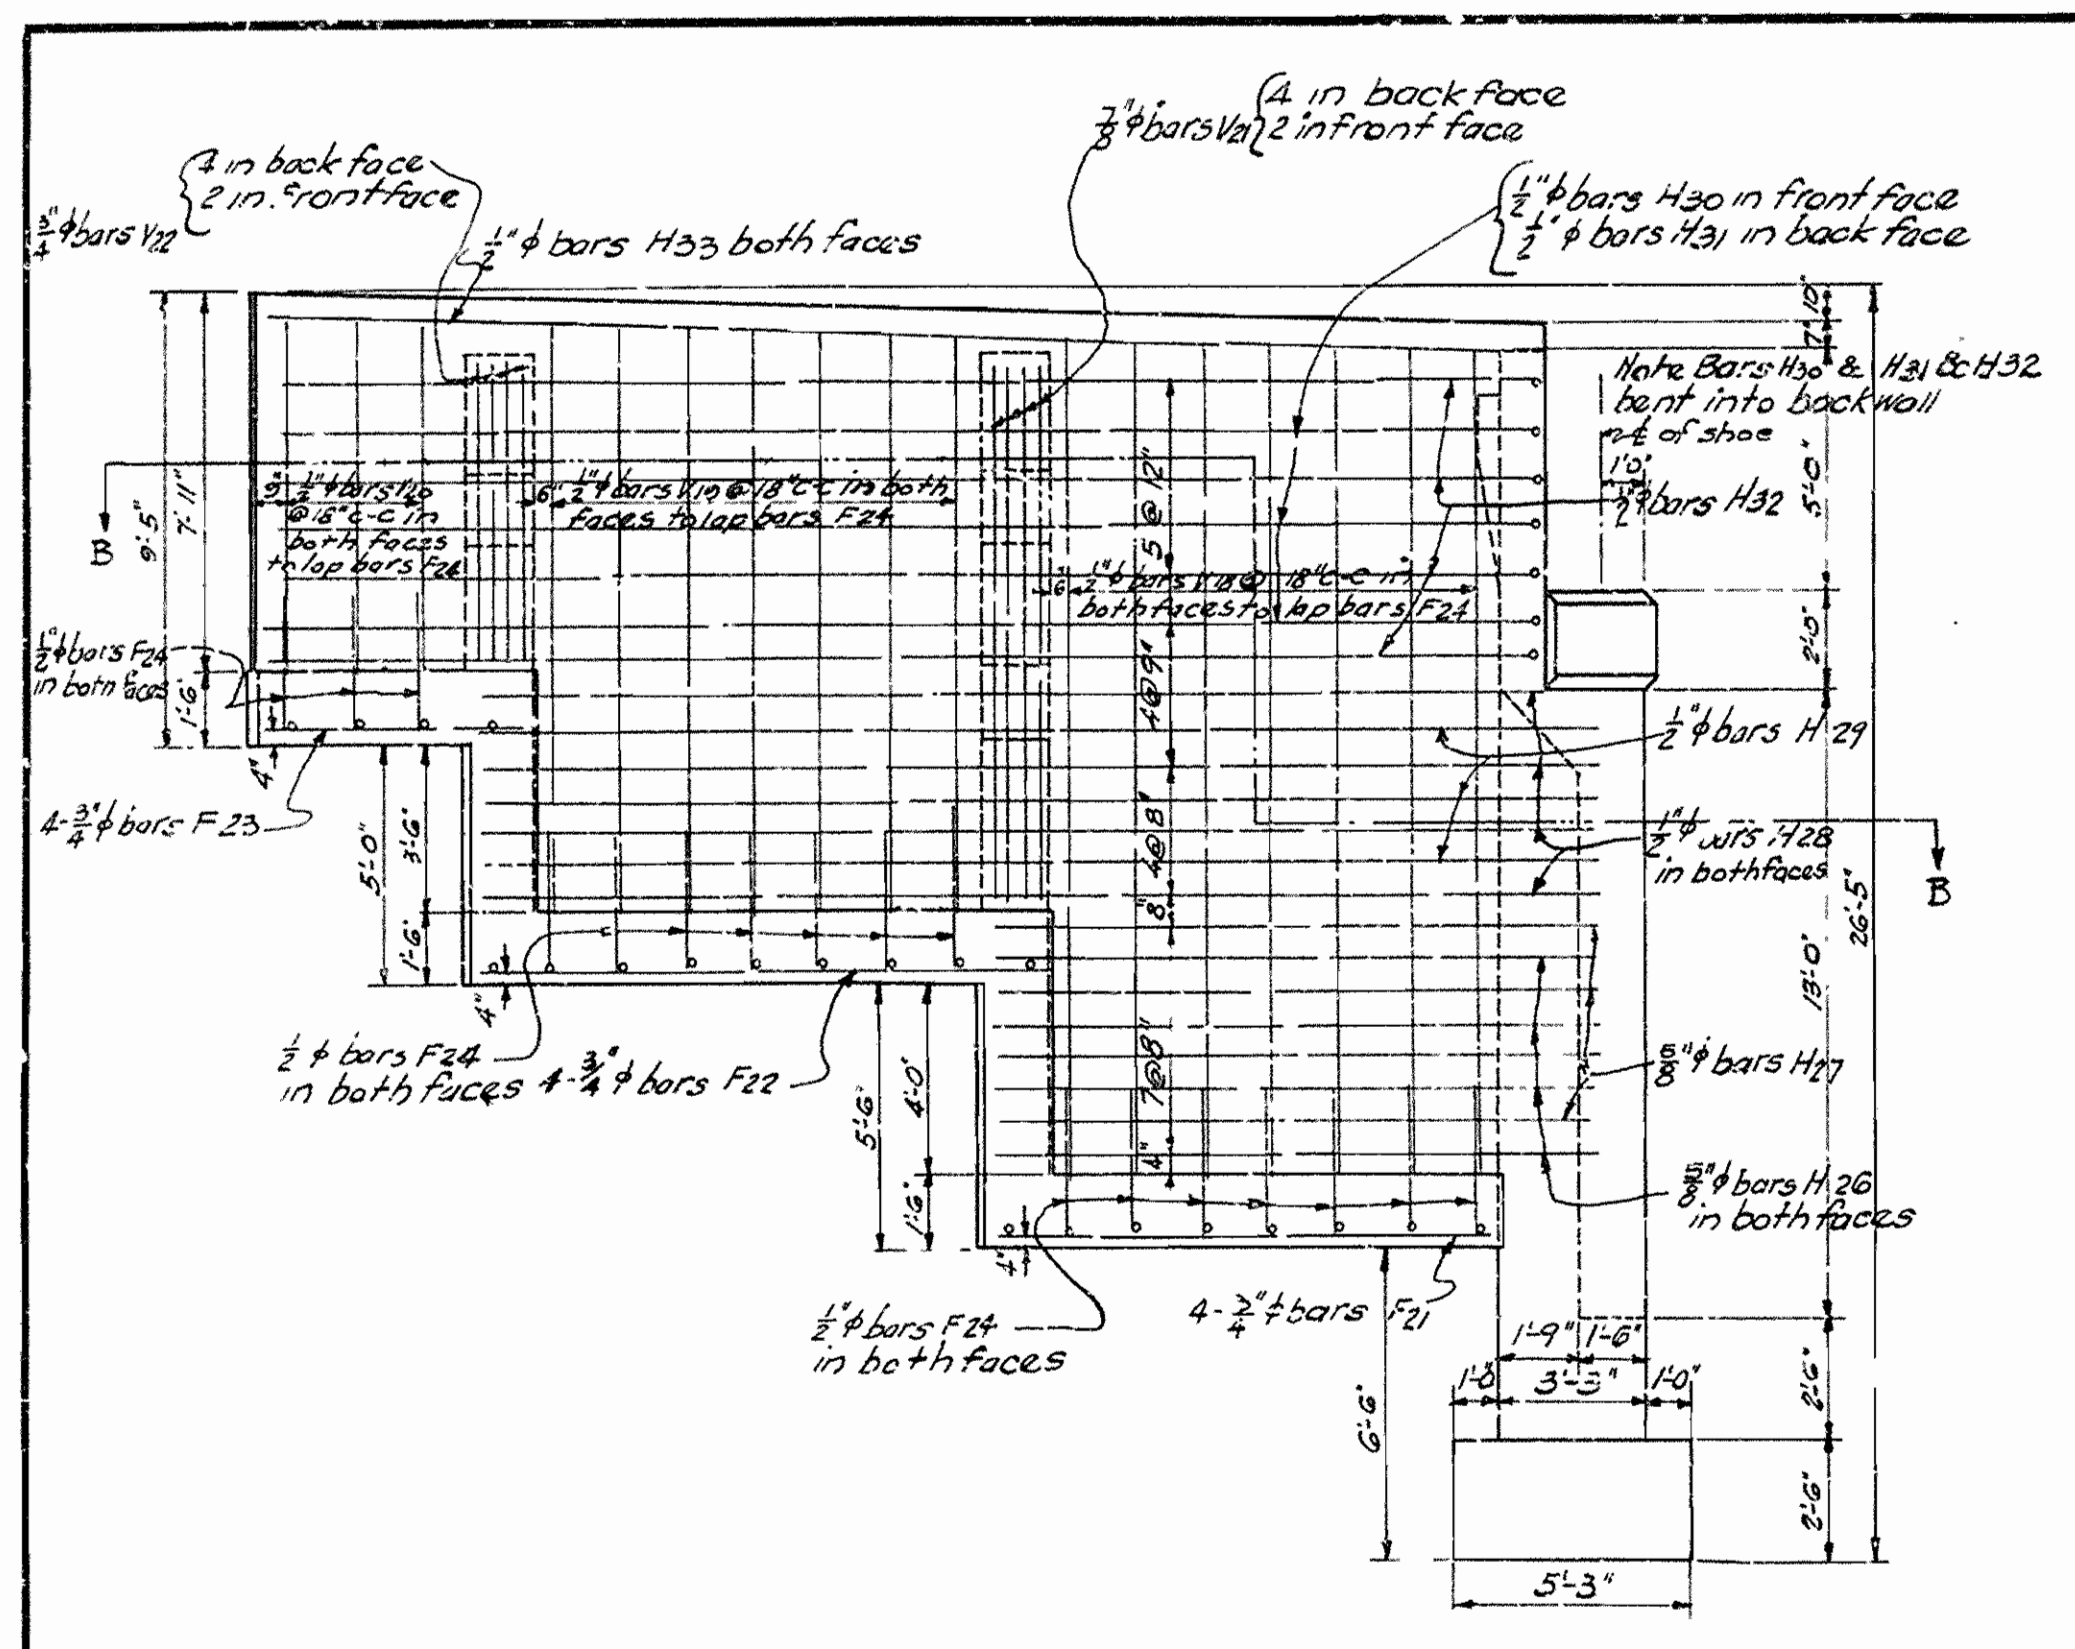 7/8"ϕ bars V21 { 4 in back face
2 in front face
3/4"ϕ bars V22 { 4 in back face
2 in front face
1/2"ϕ bars H33 both faces
1/2"ϕ bars H30 in front face
1/2"ϕ bars H31 in back face
10"
7"
Note Bars H30 & H31 & H32
bent into backwall
¢ of shoe
1'0"
1/2"ϕ bars H32
5'-0"
9'-5"
7'-11"
B
9" 1/2"ϕ bars V20
@ 18" c-c in
both faces
to lap bars F24
6" 1/2"ϕ bars V19 @ 18" c-c in both
faces to lap bars F24
5 @ 12"
6" 1/2"ϕ bars V18 @ 18" c-c in
both faces to lap bars F24
2'-0"
1/2"ϕ bars F24
in both faces
1'-6"
4"
4-3/4"ϕ bars F23
4@9"
1/2"ϕ bars H29
1/2"ϕ bars H28
in both faces
B
5'-0"
3'-6"
1'-6"
4@8"
8"
26'-5"
13'-0"
4"
1/2 ϕ bars F24
in both faces
4-3/4"ϕ bars F22
5'-6"
4'-0"
1'-6"
7@8"
4"
5/8"ϕ bars H27
5/8"ϕ bars H26
in both faces
4"
1/2"ϕ bars F24
in both faces
4-3/4"ϕ bars F21
6'-6"
1'-9" 1'-6"
1'-0" 3'-3" 1'-0"
2'-6"
2'-6"
5'-3"